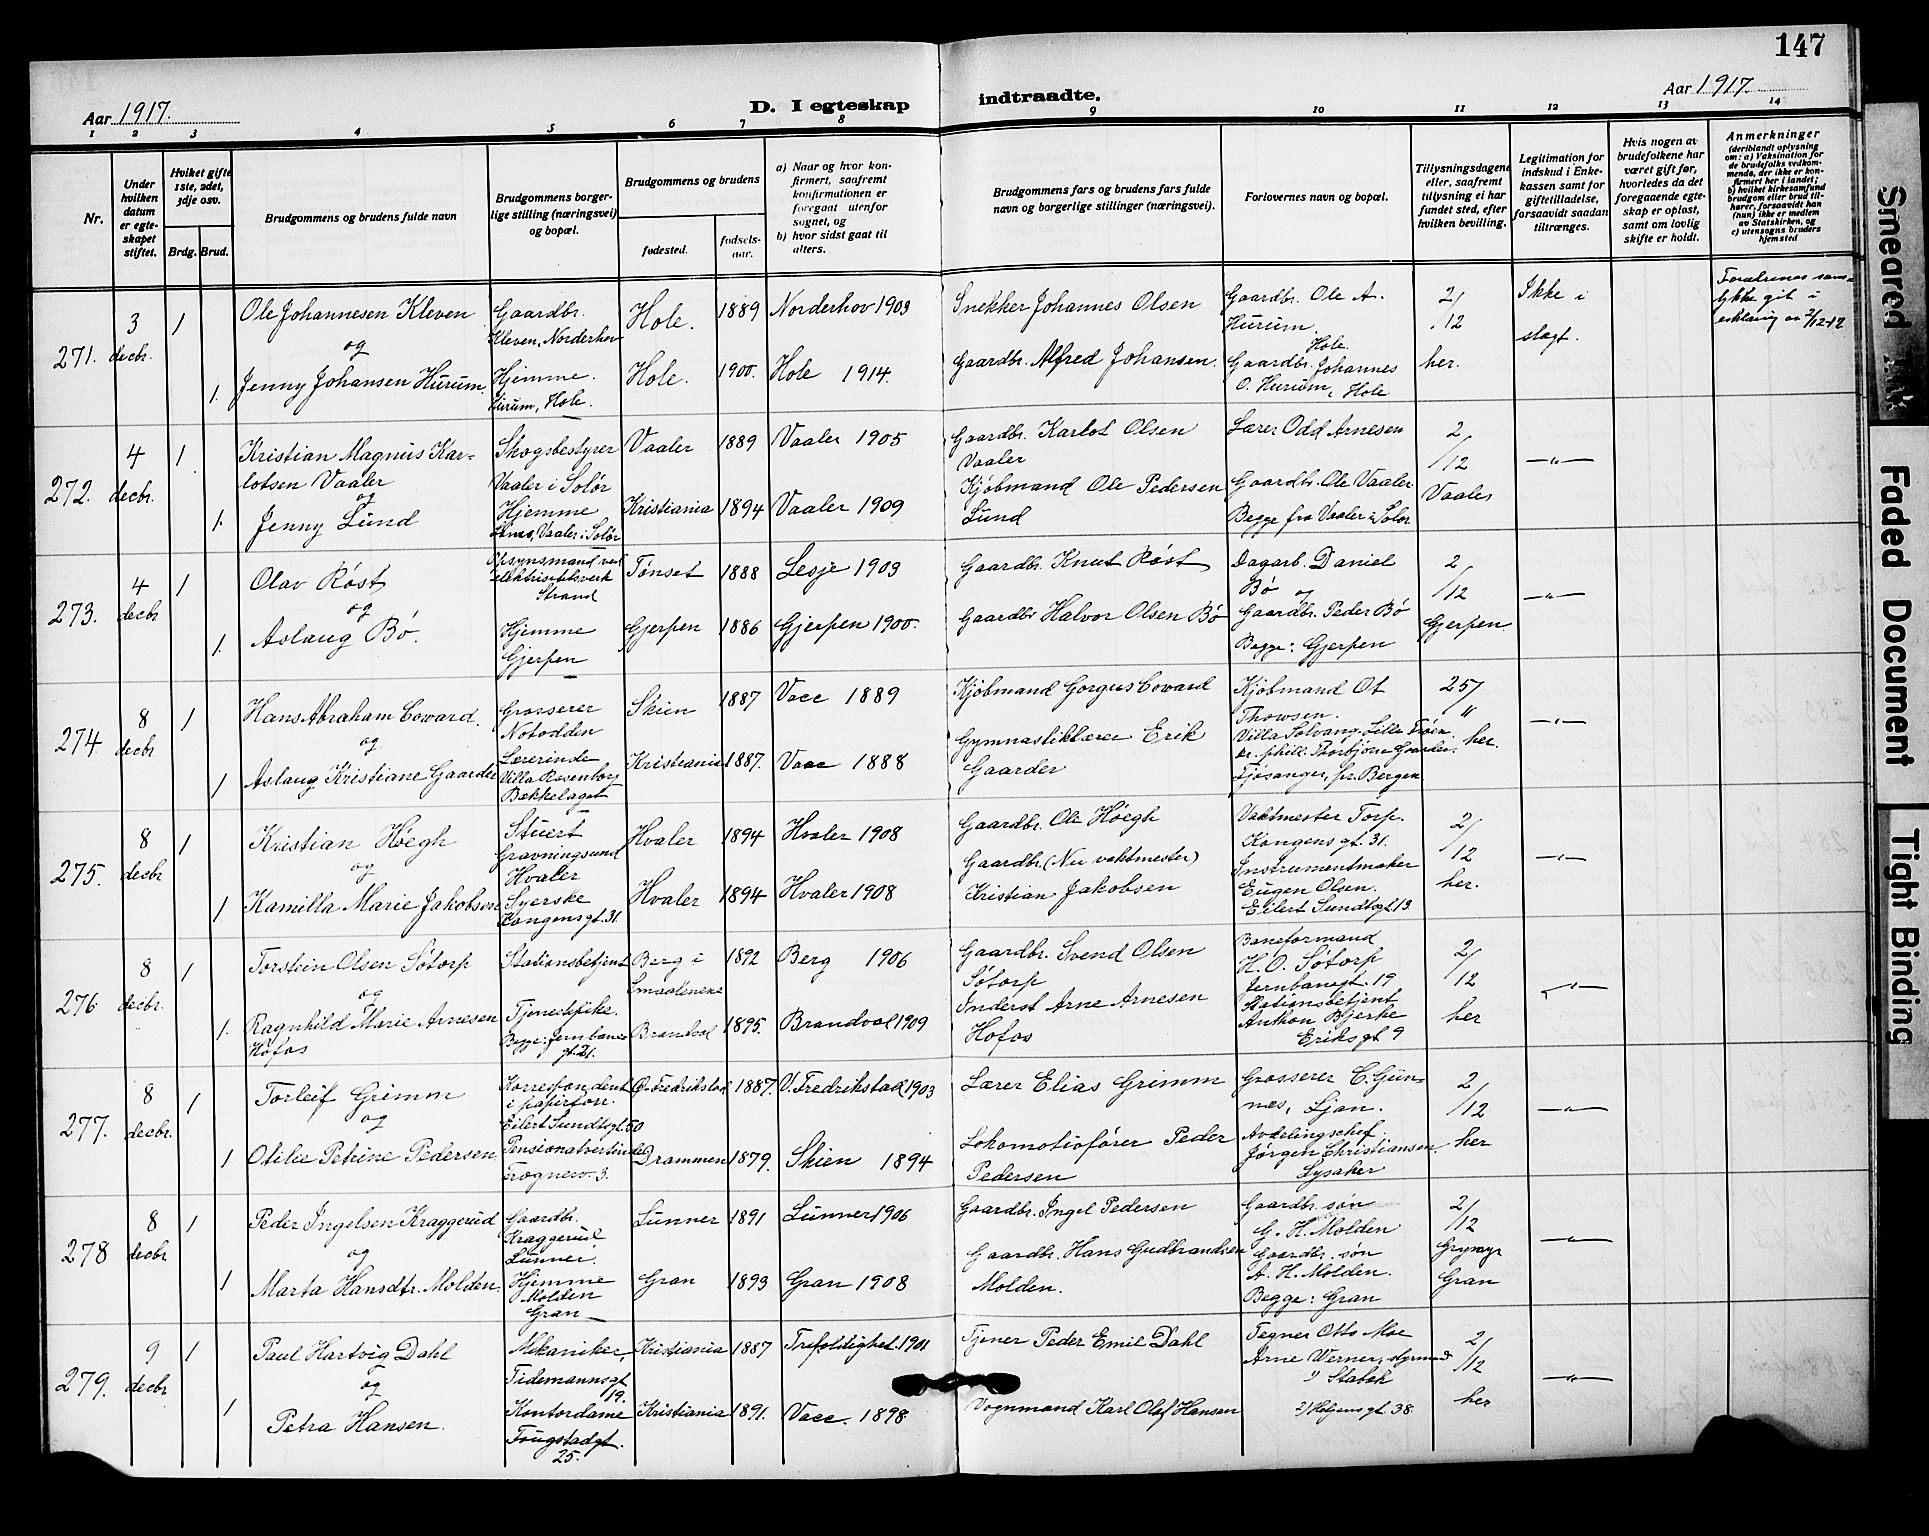 147
Aar 1917.
D. I egteskap indtraadte.
Aar 1917.
1 2 3 4 5 6 7 8 9 10 11 12 13 14
Nr.
Under hvilken datum er egteskapet stiftet.
Hviket gifte 1ste, 2det, 3dje osv.
Brdg. Brud.
Brudgommens og brudens fulde navn
Brudgommens borgerlige stilling (næringsvei) og bopæl.
Brudgommens og brudens
fødested.
fødselsaar.
a) Naar og hvor konfirmert, saafremt konfirmationen er foregaat utenfor sognet, og
b) hvor sidst gaat til alters.
Brudgommens fars og brudens fars fulde navn og borgerlige stillinger (næringsvei).
Forlovernes navn og bopæl.
Tillysningsdagene eller, saafremt tillysning ei har fundet sted, efter hvilken bevilling.
Legitimation for indskud i Enkekassen samt for giftetilladelse, forsaavidt saadan tiltrænges.
Hvis nogen av brudefolkene har været gift før, hvorledes da det foregaaende egteskap er opløst, samt om lovlig skifte er holdt.
Anmerkninger
(deriblandt oplysning om: a) Vaksination for de brudefolks vedkommende, der ikke er konfirmert her i landet; b) hvilket kirkesamfund brudgom eller brud tilhører, forsaavidt han (hun) ikke er medlem av Statskirken, og c) utensogns bruders hjemsted
271. 3 decbr. 1
Ole Johannesen Kleven
og
1. Jenny Johansen Hurum.
Gaardbr.
Kleven, Norderhov
Hjemme.
Hurum, Hole.
Hole. 1889 Norderhov 1903
Hole. 1900. Hole 1914.
Snekker Johannes Olsen
Gaardbr. Alfred Johansen.
Gaardbr. Ole A.
Hurum.
Hole.
Gaardbr. Johannes
O. Hurum, Hole
2/
/12
her.
Ikke i
slægt.
Forældrenes sam-
tykke git i
erklæring av 2/12-17
272. 4 decbr. 1
Kristian Magnus Kar-
lotsen Vaaler
og
1. Jenny Lund
Skogsbestyrer
Vaaler i Solør
Hjemme
Vaaler i Solør
Vaaler 1889 Vaaler 1905
Kristiania 1894 Vaaler 1909
Gaardbr. Karlot Olsen
Vaaler
Kjøbmand Ole Pedersen
Lund
Lærer Odd Arnesen
Gaardbr. Ole Vaaler
Begge fra Vaaler i Solør
2
/12
Vaaler
—"—
273. 4 decbr 1
Olav Røst
og
1. Aslaug Bø.
Opsynsmand ved
elektrisitetsverk
Strand
Hjemme
Gjerpen
Tønset 1888 Lesje 1903
Gjerpen 1886 Gjerpen 1900.
Gaardbr. Knut Røst
Gaardbr Halvor Olsen Bø
Dagarb. Daniel
Bø og
Gaardbr. Peder Bø
Begge: Gjerpen
2
/12
Gjerpen.
—"—
274 8 decbr 1
Hans Abraham Coward.
og
1 Aslaug Kristiane Gaarder
Grosserer
Notodden
Lærerinde
Villa Rosenborg
Bækkelaget
Skien 1887 Vacc 1889
Kristiania 1887. Vacc 1888
Kjøbmand Gorgus Coward
Gymnastiklærer Erik
Gaarder
Kjøbmand Ot
Thowsen.
Villa Solvang. Lille Frøen
dr. phill. Thorbjørn Gaarder.
Fjøsanger, pr. Bergen
25/
"
her.
—"—
275. 8 decbr 1
Kristian Høegh
og
1 Kamilla Marie Jakobsen
Stuert
Gravningsund
Hvaler
Syerske
Kongensgt. 31.
Hvaler 1894 Hvaler 1908
Hvaler 1894 Hvaler 1908
Gaardbr. Ole Høegh
Gaardbr. (Nu vaktmester)
Kristian Jakobsen
Vaktmester Torp.
Kongens gt. 31.
Instrumentmaker
Eugen Olsen.
Eilert Sundtsgt. 13.
2/
12
her.
—"—
276. 8 decbr. 1
Torstein Olsen Søtorp
og
1. Ragnhild Marie Arnesen
Hofos
Stationsbetjent
Tjenestpike.
Begge: Jernbane-
gt. 21.
Berg i
Smaalenene
1892 Berg 1906
Brandval 1895. Brandval 1909
Gaardbr. Svend Olsen
Søtorp
Inderst Arne Arnesen
Hofos
Baneformand
H. O. Søtorp
Jernbanegt. 19
Stationsbetjent
Anthon Bjerke
Eriksgt 9
2/
12
her
—"—
277. 8 decbr. 1
Torleif Grimm
og
1 Otilie Petrine Pedersen
Korrespondent
i papirforr.
Eilert Sundtsgt. 50
Pensionatvertinde
Frognerv. 3.
Ø. Fredrikstad 1887. V. Fredrikstad 1903
Drammen 1879. Skien 1894
Lærer Elias Grimm
Lokomotivfører Peder
Pedersen
Grosserer C. Gün-
næs, Ljan.
Avdelingschef
Jørgen Christiansen.
Lysaker
2/
/12
her
—"—
278 8 decbr 1
Peder Ingelsen Kraggerud
og
1 Marta Hansdtr. Molden.
Gaardbr.
Kraggerud
Lunner.
Hjemme
Molden
Gran
Lunner 1891 Lunner 1906
Gran 1893 Gran 1908
Gaardbr. Ingel Pedersen
Gaardbr. Hans Gudbrandsen
Molden.
Gaardbr. søn
G. H. Molden
Gaardbr. søn
A. H. Molden.
Begge: Gran
2/
/12
Grymyr
Gran
—"—
279. 9 decbr 1
Paul Hartvig Dahl
og
1 Petra Hansen.
Mekaniker,
Tidemannsgt
19.
Kontordame
Fougstadgt.
25.
Kristiania 1887 Trefoldighet 1901
Kristiania 1891. Vacc. 1898
Tjener Peder Emil Dahl
Vognmand Karl Olaf Hansen
Tegner Otto Moe
Arne Werner, styrmand
1) Stabæk
2) Helgensgt 38.
2/
/12
her
—"—
Smeared Ink
Faded Document
Tight Binding